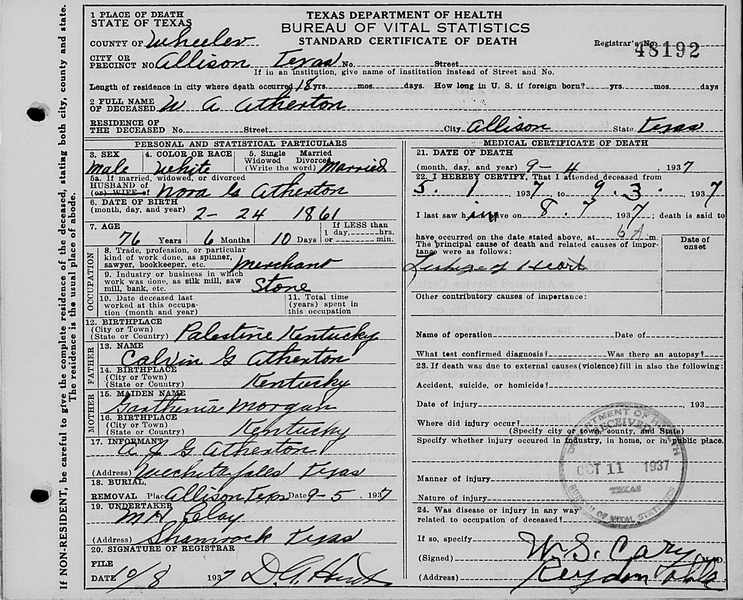 1 PLACE OF DEATH
STATE OF TEXAS
TEXAS DEPARTMENT OF HEALTH
BUREAU OF VITAL STATISTICS
STANDARD CERTIFICATE OF DEATH
COUNTY OF Wheeler
Registrar's No. 48192
CITY OR
PRECINCT NO. Allison Texas No. Street
If in an institution, give name of institution instead of Street and No.
Length of residence in city where death occurred 18 yrs. mos. days. How long in U. S. if foreign born? yrs. mos. days
2 FULL NAME
OF DECEASED W A Atherton
RESIDENCE OF
THE DECEASED No. Street City Allison State Texas
PERSONAL AND STATISTICAL PARTICULARS
3. SEX 4. COLOR OR RACE 5. Single Married
Widowed Divorced
(Write the word) Married
Male White
5a. If married, widowed, or divorced
HUSBAND OF
(or) WIFE of Nora G Atherton
6. DATE OF BIRTH
(month, day, and year) 2- 24 1861
7. AGE If LESS than
1 day, hrs.
76 Years 6 Months 10 Days or min.
OCCUPATION
8. Trade, profession, or particular
kind of work done, as spinner,
sawyer, bookkeeper, etc. Merchant
9. Industry or business in which
work was done, as silk mill, saw
mill, bank, etc. Store
10. Date deceased last
worked at this occupa-
tion (month and year)
11. Total time
(years) spent in
this occupation
12. BIRTHPLACE
(City or Town)
(State or Country) Palestine Kentucky
FATHER
13. NAME
Calvin G Atherton
14. BIRTHPLACE
(City or Town)
(State or Country) Kentucky
MOTHER
15. MAIDEN NAME
Morgan
16. BIRTHPLACE
(City or Town)
(State or Country) Kentucky
17. INFORMANT
Atherton
(Address) Wichita falls Texas
18. BURIAL,
REMOVAL Place Allison Texas Date 9-5 1937
19. UNDERTAKER
M H Clay
(Address) Shamrock Texas
20. SIGNATURE OF REGISTRAR
FILE
DATE 9/8 1937 D. A. Hunt
MEDICAL CERTIFICATE OF DEATH
21. DATE OF DEATH
(month, day, and year) 9- 4 1937
22. I HEREBY CERTIFY, That I attended deceased from
5. 1 1937 to 9. 3. 1937
I last saw him alive on 8. 7 1937; death is said to
have occurred on the date stated above, at 6 A m.
The principal cause of death and related causes of impor-
tance were as follows:
Date of
onset
of Heart
Other contributory causes of importance:
Name of operation Date of
What test confirmed diagnosis? Was there an autopsy?
23. If death was due to external causes (violence) fill in also the following:
Accident, suicide, or homicide?
Date of injury 193
Where did injury occur?
(Specify city or town, county, and State)
Specify whether injury occurred in industry, in home, or in public place.
Manner of injury
Nature of injury
DEPARTMENT OF HEALTH
RECEIVED
OCT 11 1937
TEXAS
BUREAU OF VITAL STATISTICS
24. Was disease or injury in any way
related to occupation of deceased?
If so, specify
(Signed) W. S. Cary M.D.
(Address) Reydon Okla
If NON-RESIDENT, be careful to give the complete residence of the deceased, stating both city, county and state.
The residence is the usual place of abode.